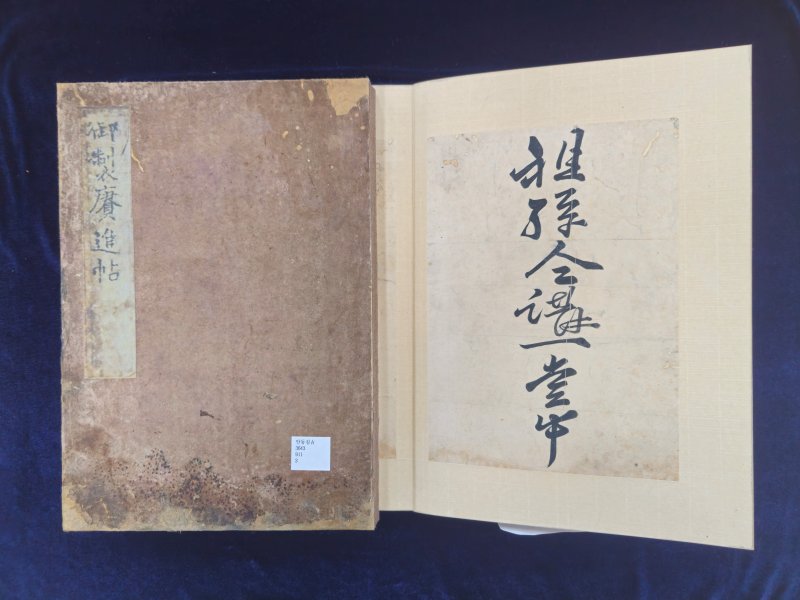 御製賡進帖
稚孫今講一堂中